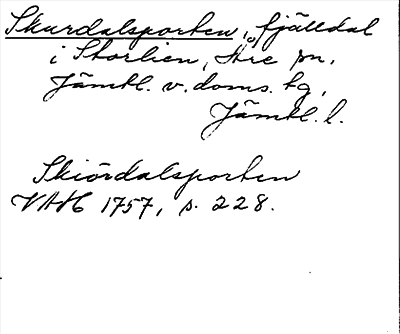 Skurdalsporten, fjälldal
i Storlien, Åre sn,
Jämtl. v. doms. tg,
Jämtl. l.
Skiördalsporten
VAH 1757, s. 228.